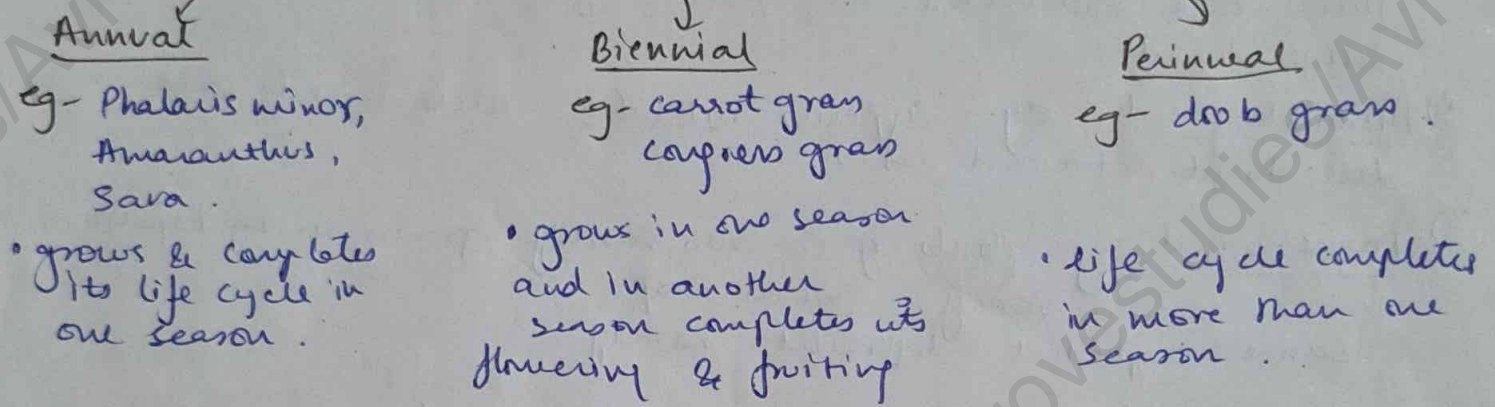 Annual
eg- Phalaris minor,
Amaranthus,
Sava.
• grows & completes
its life cycle in
one season.
Biennial
eg- carrot grass
congress grass
• grows in one season
and in another
season completes its
flowering & fruiting
Perinneal
eg- doob grass.
• life cycle completes
in more than one
season.